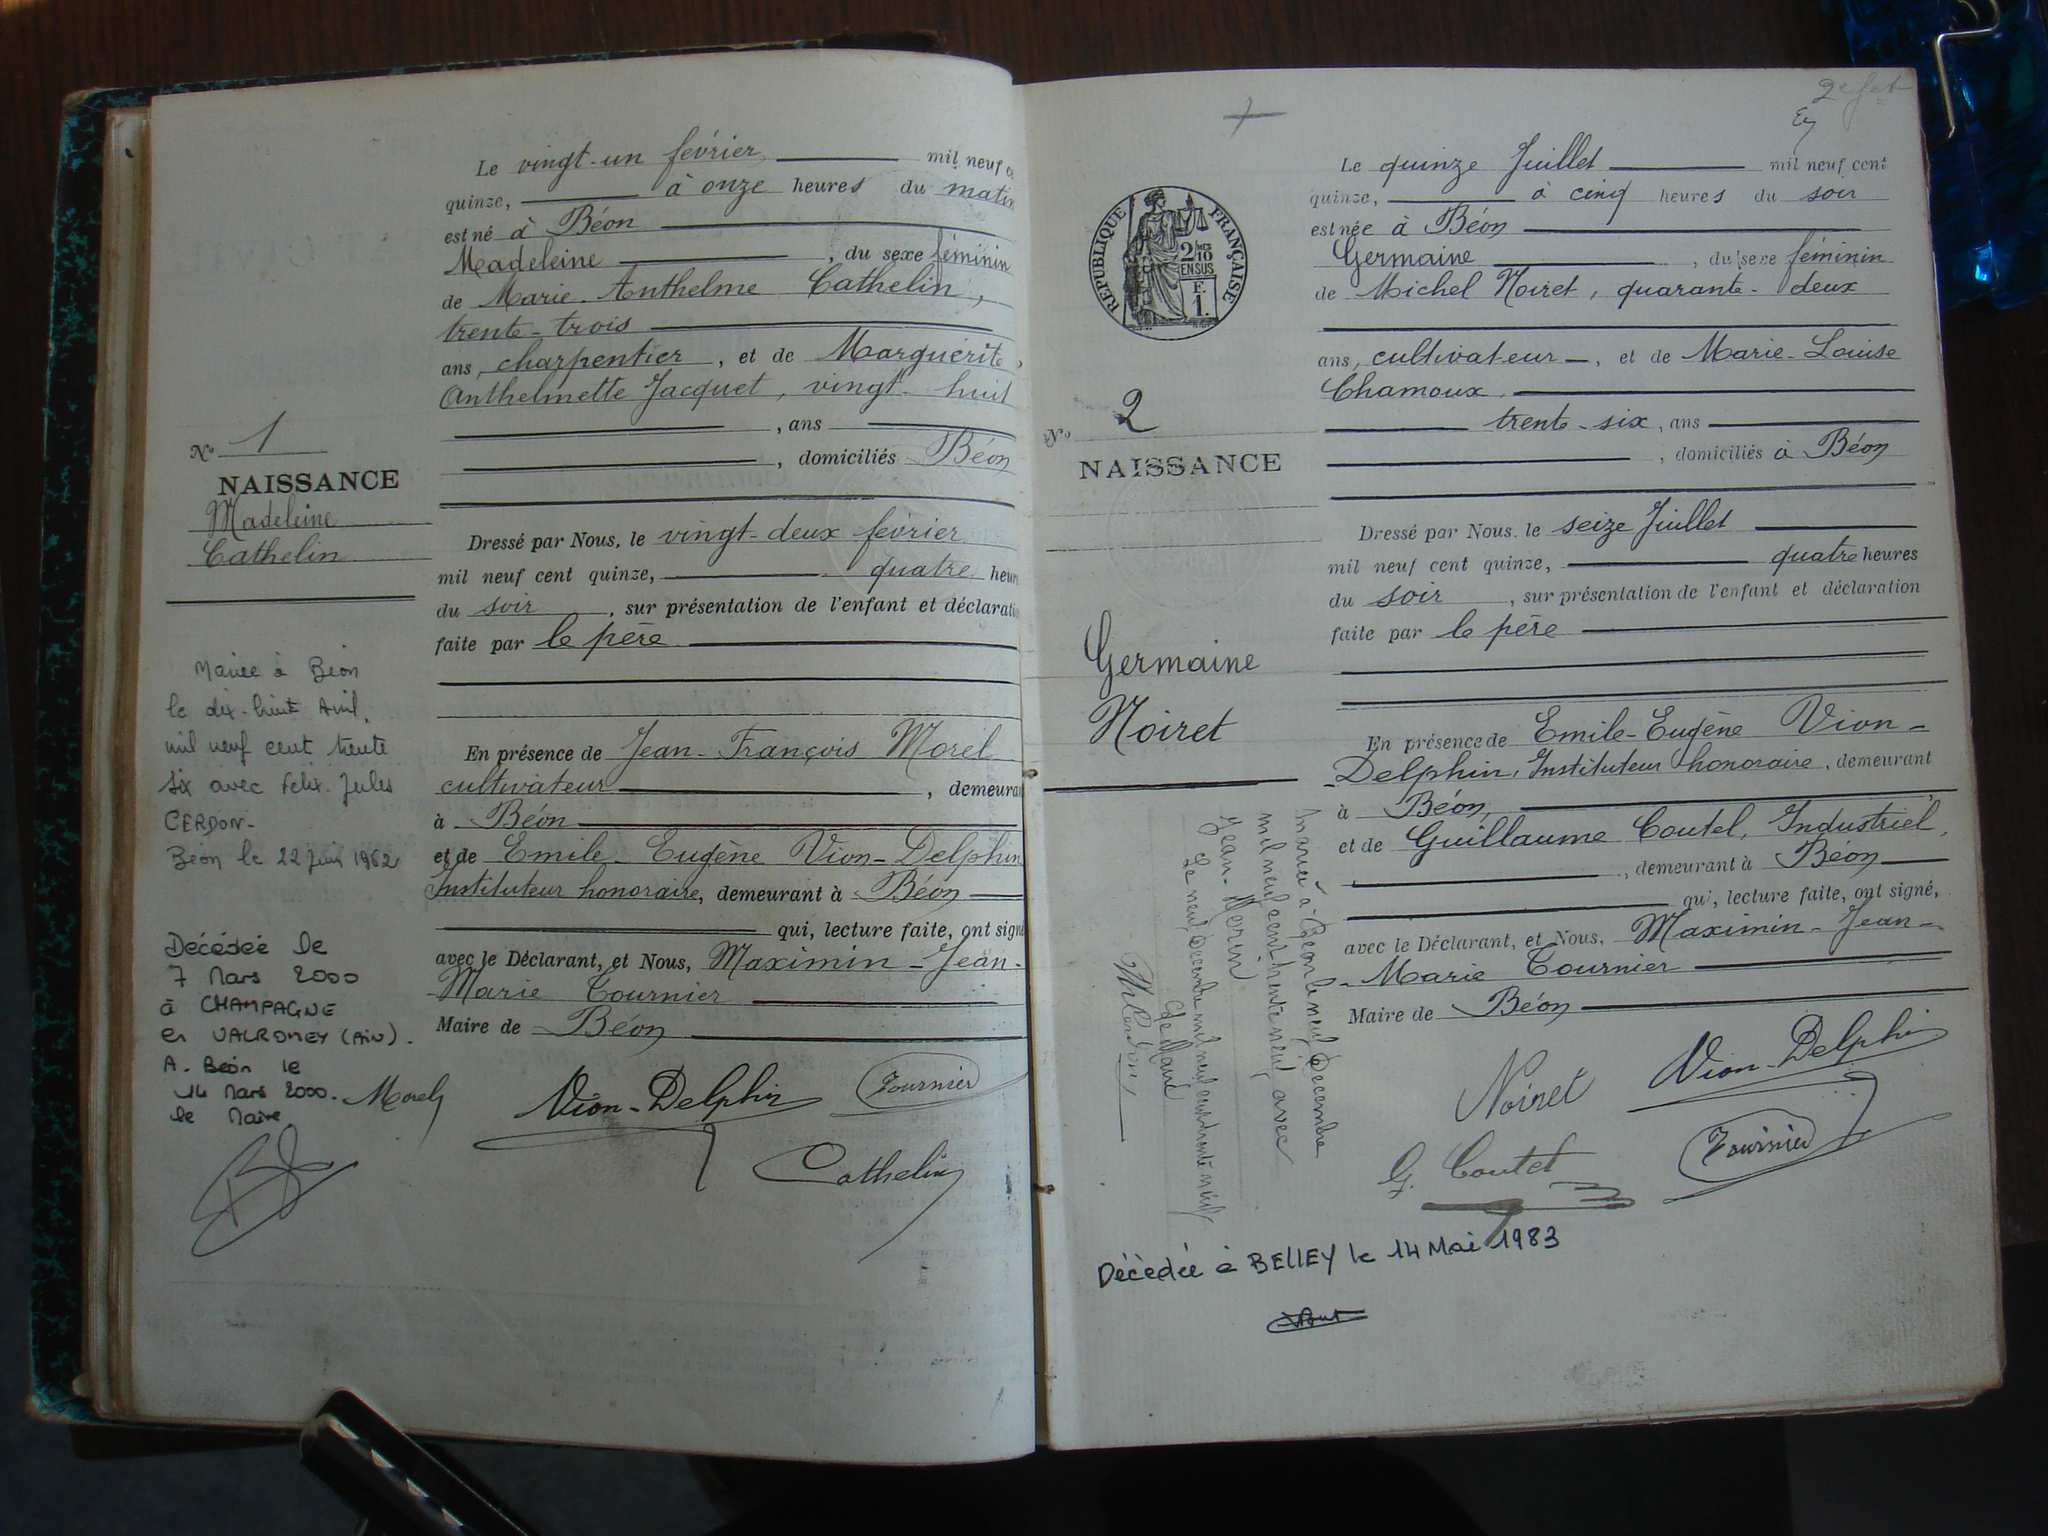 Le vingt-un février, mil neuf
quinze, à onze heures du matin
est né à Béon
Madeleine, du sexe féminin
de Marie-Anthelme Cathelin,
trente-trois
ans, charpentier, et de Marguerite
Anthelmette Jacquet, vingt-huit
, ans
, domiciliés Béon
No 1
NAISSANCE
Madeleine
Cathelin
Dressé par Nous, le vingt-deux février
mil neuf cent quinze, quatre heures
du soir, sur présentation de l'enfant et déclaration
faite par le père
En présence de Jean-François Morel
cultivateur, demeurant
à Béon
et de Emile-Eugène Vion-Delphin
Instituteur honoraire, demeurant à Béon
qui, lecture faite, ont signé
avec le Déclarant, et Nous, Maximin-Jean-
Marie Tournier
Maire de Béon
Morel
Vion-Delphin
Tournier
Cathelin
Mariée à Béon
le dix-huit Avril
mil neuf cent trente
six avec Felix-Jules
CERDON-
Béon le 22 Juin 1962
Décédée le
7 Mars 2000
à CHAMPAGNE
en VALROMEY (Ain).
A-Béon le
14 Mars 2000.
Le Maire
2e
7
REPUBLIQUE FRANÇAISE
2/10
EN SUS
F.
1.
Le quinze Juillet mil neuf cent
quinze, à cinq heures du soir
est née à Béon
Germaine, du sexe féminin
de Michel Noiret, quarante-deux
ans, cultivateur, et de Marie-Louise
Chamoux,
trente-six, ans
, domiciliés à Béon
No 2
NAISSANCE
Germaine
Noiret
Dressé par Nous, le seize Juillet
mil neuf cent quinze, quatre heures
du soir, sur présentation de l'enfant et déclaration
faite par le père
En présence de Emile-Eugène Vion-
-Delphin, Instituteur honoraire, demeurant
à Béon,
et de Guillaume Coutel, Industriel,
, demeurant à Béon
qui, lecture faite, ont signé,
avec le Déclarant, et Nous, Maximin-Jean-
-Marie Tournier
Maire de Béon
Noiret
Vion-Delphin
G. Coutet
Tournier
Marié à Béon le neuf Decembre
mil neuf cent trente neuf, avec
Jean
Le neuf Decembre mil neuf cent trente neuf
Le Maire
Décédée à BELLEY le 14 Mai 1983